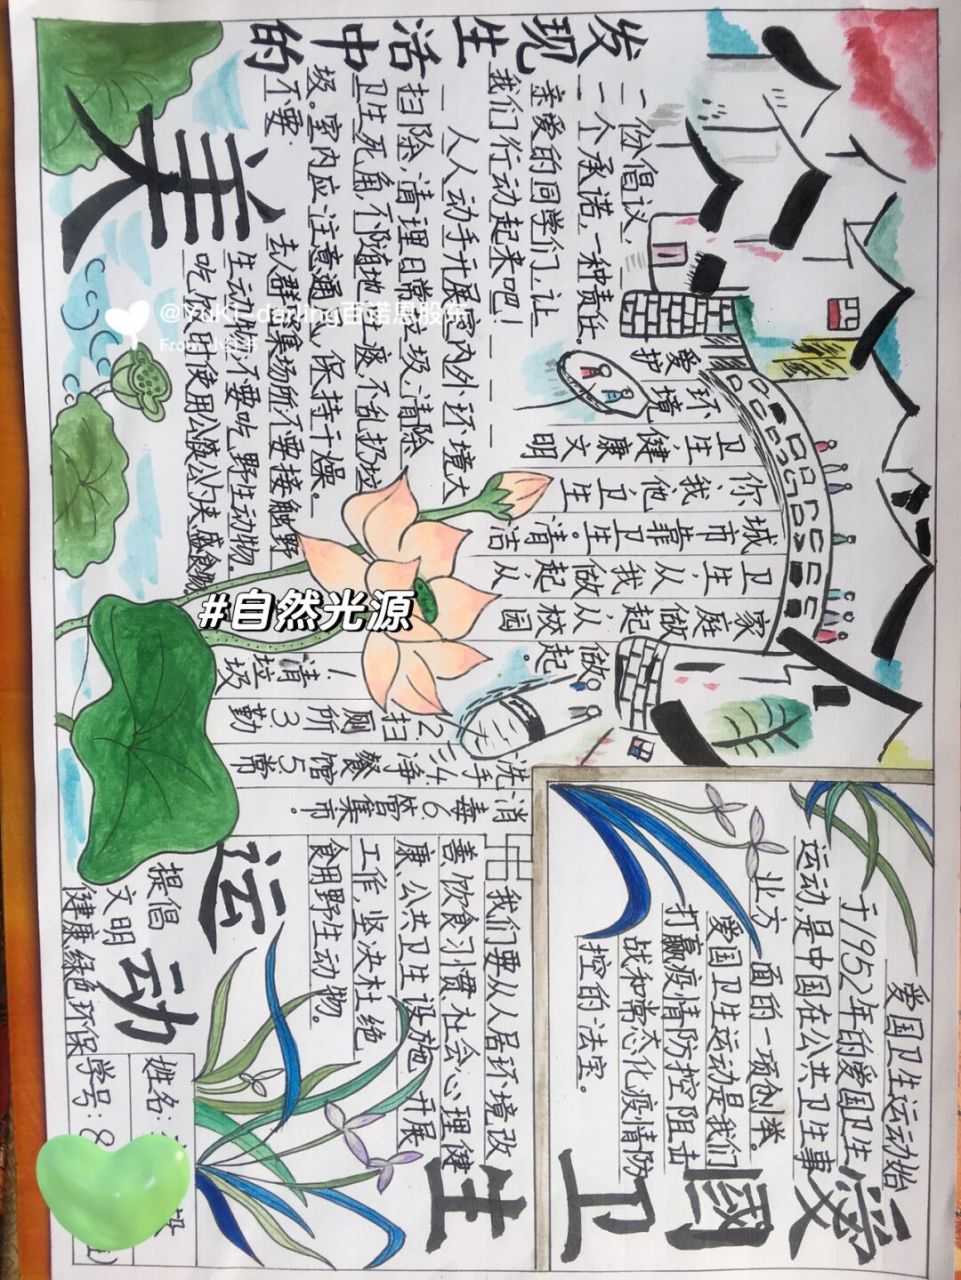 爱国卫生
运动
爱国卫生运动始
于1952年的爱国卫生
运动是中国在公共卫生事
业方面的一项创举。
爱国卫生运动是我们
打赢疫情防控阻击
战和常态化疫情防
控的法宝。
我们要从人居环境改
善、饮食习惯、社会心理健
康、公共卫生设施开展
工作,坚决杜绝
食用野生动物。
提倡
文明
健康 绿色环保
姓名:
学号:8
发现生活中的
美
一份倡议,一种责任。
一个承诺,
亲爱的同学们,让
我们行动起来吧!
人人动手开展室内外环境大
扫除,清理日常垃圾,清除
卫生死角,不随地吐痰,不乱扔垃
圾。室内应注意通风,保持干燥。
不要去人群密集场所,不要接触野
生动物,不要吃野生动物。
吃饭时使用公筷公勺夹盛食物。
爱护环境
卫生健康文明
你我他卫生
城市靠卫生。清洁
卫生从我做起从
家庭做起从校园
做起。
1清垃圾
2扫厕所3勤
洗手4净餐馆5常
消毒6管集市。
#自然光源
@Yuki_darling百诺恩股东
From 小红书